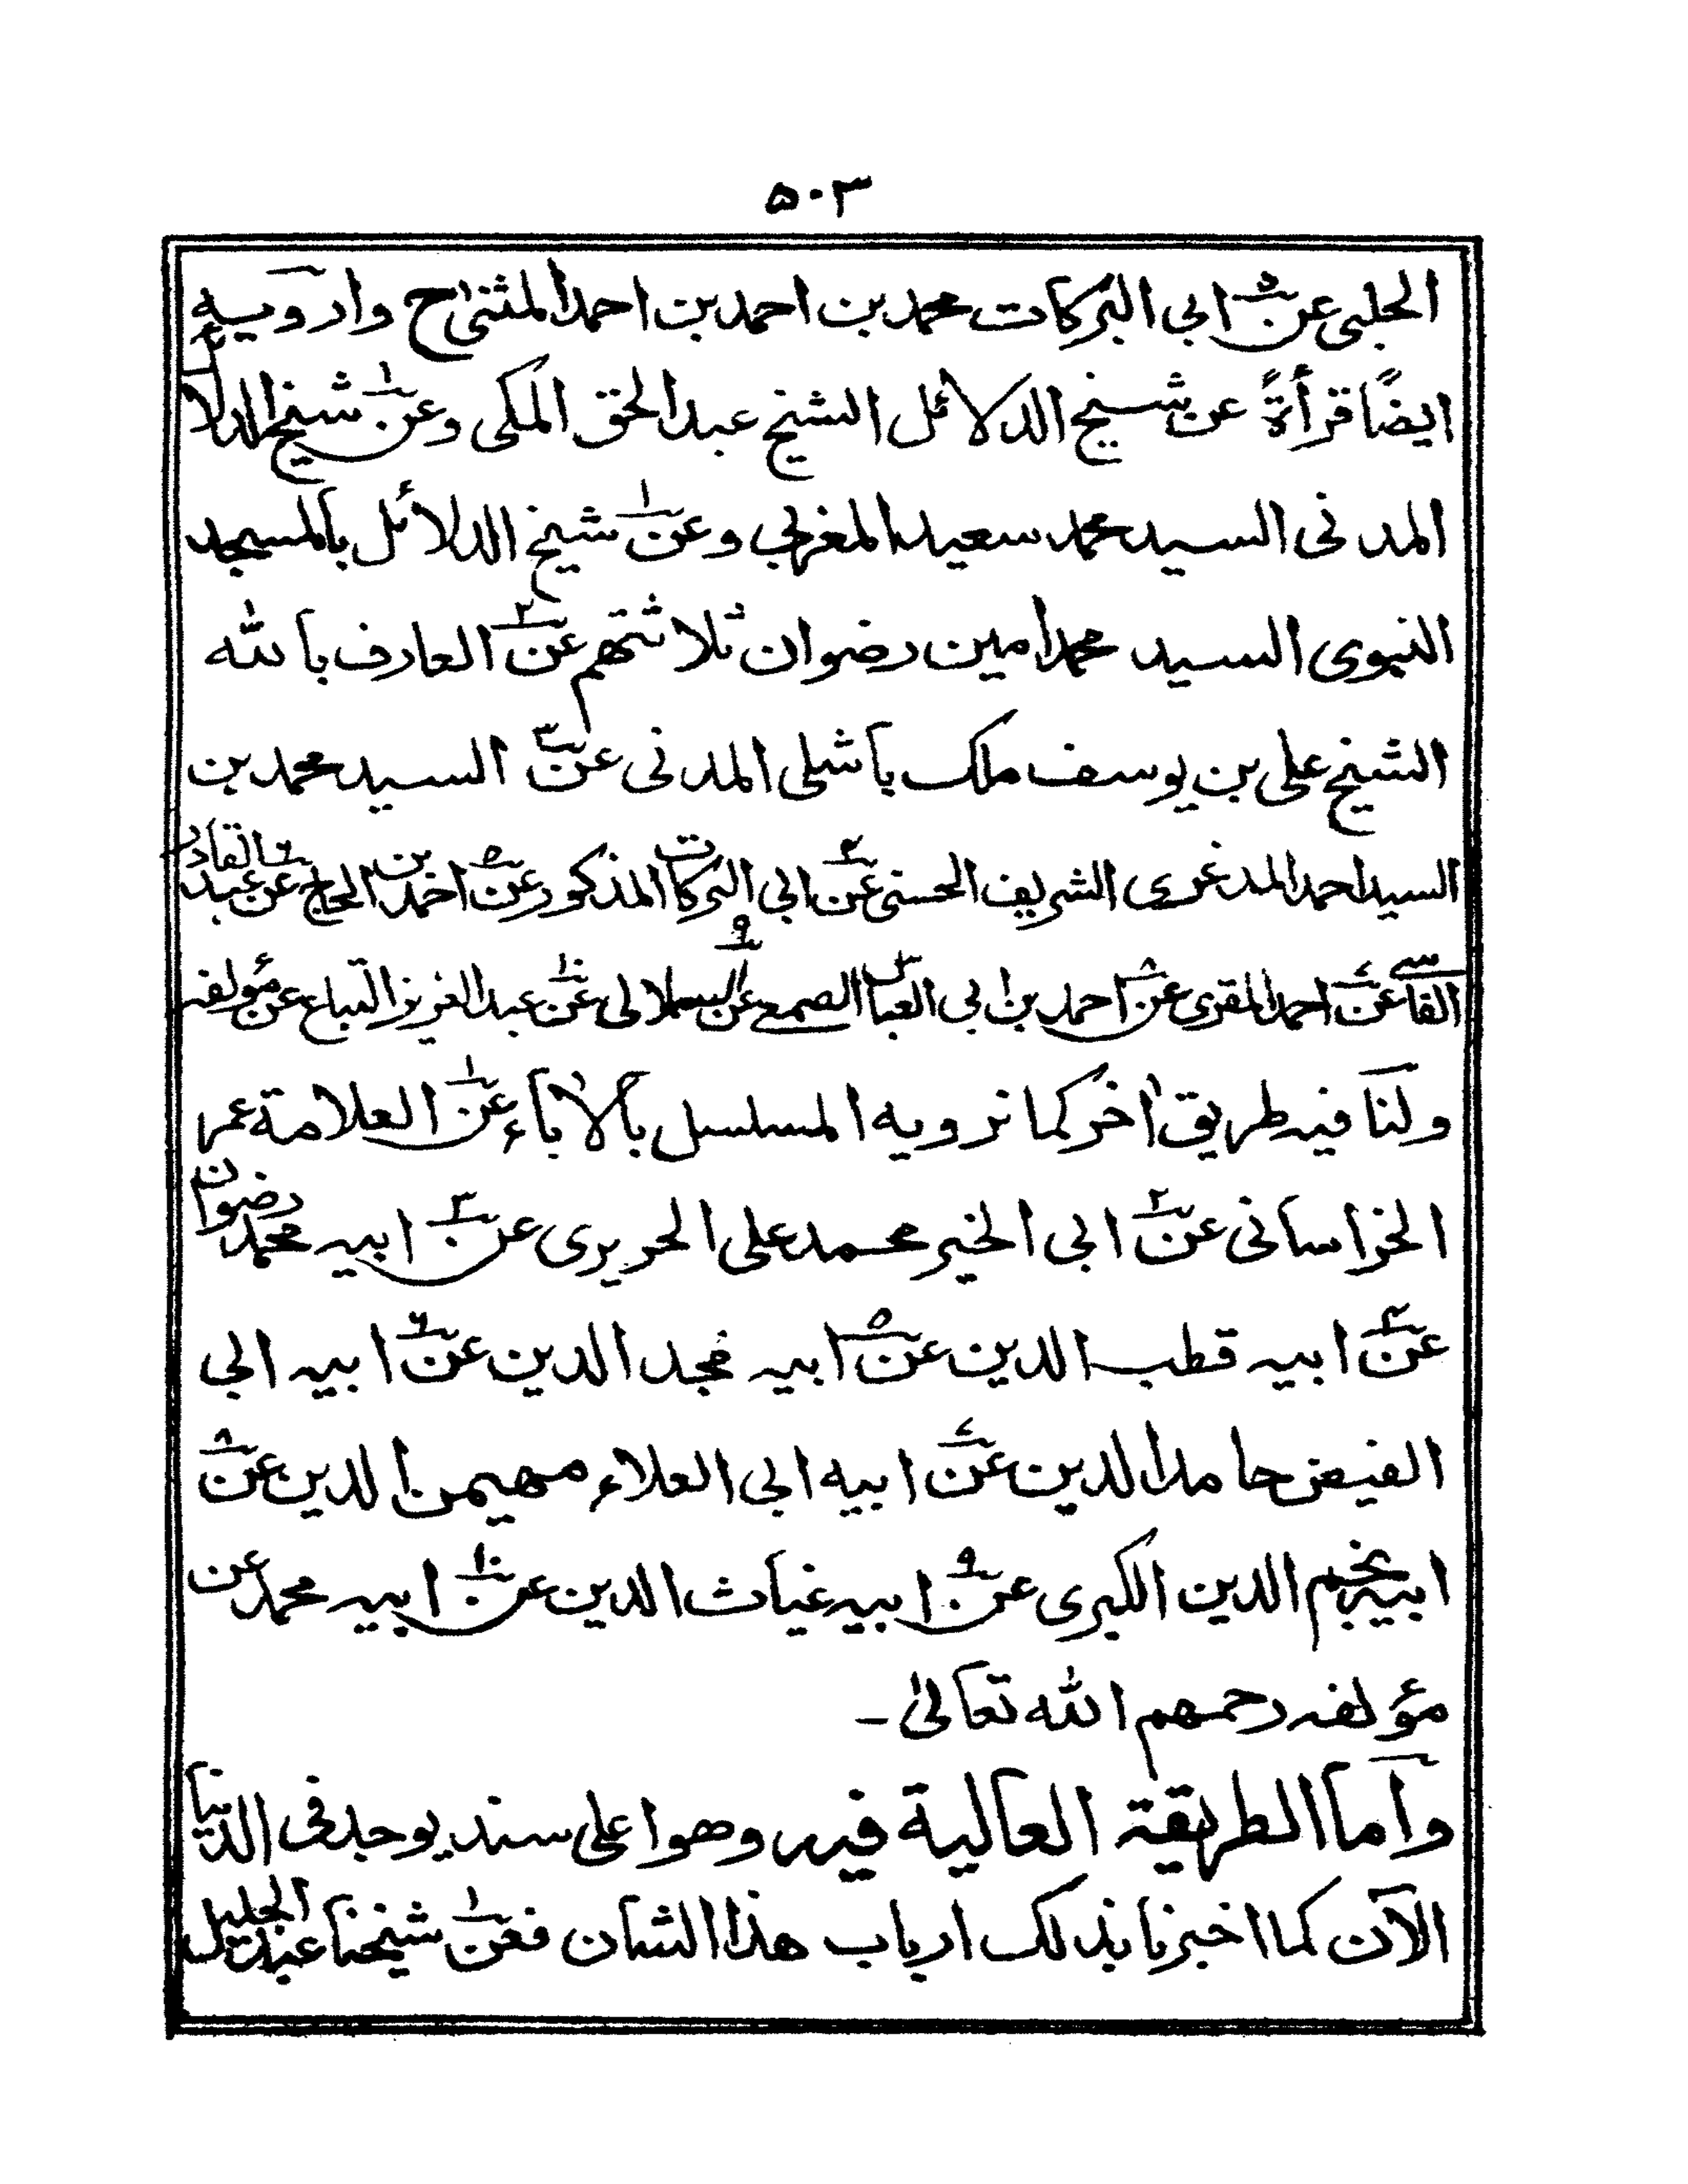 ٥٠٣
الحلبی عن ٥ ابی البرکات محمد بن احمد بن احمد المثنیٰ ح وارویه
ایضًا قرأةً عن شیخ الدلائل الشیخ عبد الحق المکی وعن ١ شیخ الدلائل
المدنی السید محمد سعید المغربی وعن ١ شیخ الدلائل بالمسجد
النبوی السید محمد امین رضوان ثلاثتهم عن ٢ العارف بالله
الشیخ علی بن یوسف ملک باشلی المدنی عن ٣ السید محمد بن
السید احمد المدغری الشریف الحسنی عن ٤ ابی البرکات المذکور عن ٥ احمد بن الحاج عن ٦ عبد القادر
الفاسی عن ٧ احمد المقری عن ٨ احمد بن ابی العباس الصمعی عن ٩ السملالی عن ١٠ عبد العزیز التباع عن مؤلفه
ولنا فیه طریق اٰخر کما نرویه المسلسل بالاٰباء عن ١ العلامة عمر
الخراسانی عن ٢ ابی الخیر محمد علی الحریری عن ٣ ابیه محمد رضوان
عن ٤ ابیه قطب الدین عن ٥ ابیه مجد الدین عن ٦ ابیه ابی
الفیض حامد الدین عن ٧ ابیه ابی العلاء مهیمن الدین عن ٨
ابیه نجم الدین الکبری عن ٩ ابیه غیاث الدین عن ١٠ ابیه محمد عن
مؤلفه رحمهم الله تعالیٰ ـ
وأما الطریقة العالیة فیه وهو اعلی سند یوجد فی الدنیا
الآن کما اخبرنا بذلک ارباب هذا الشان فعن ١ شیخنا عبد الجلیل